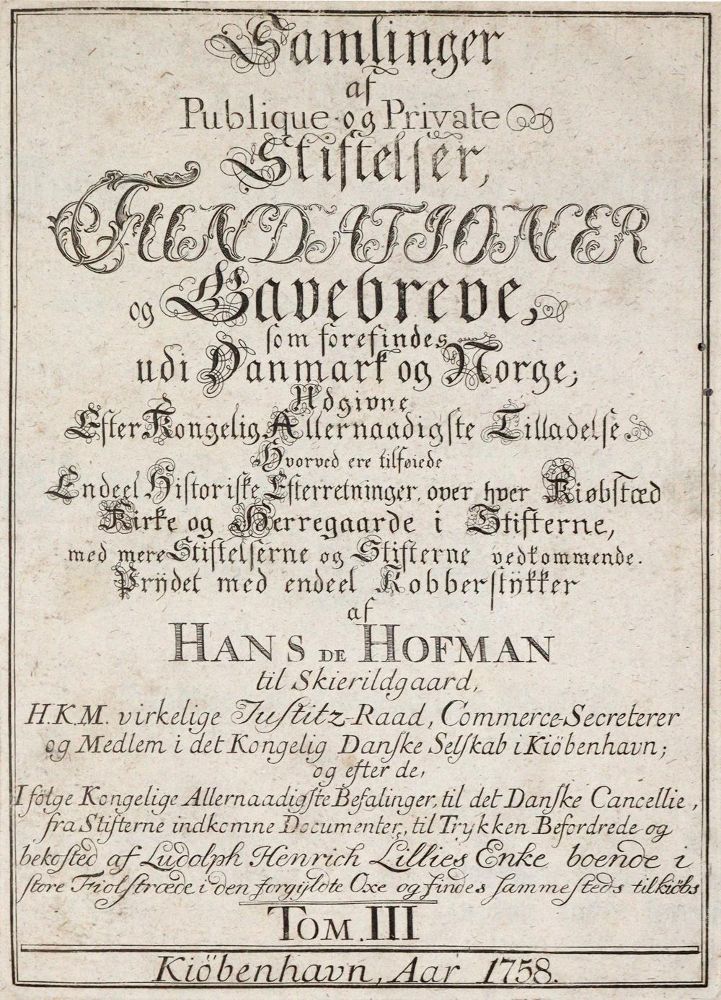 Samlinger
af
Publique og Private
Stiftelser,
FUNDATIONER
og Gavebreve,
som forefindes
udi Danmark og Norge;
Udgivne
Efter Kongelig Allernaadigste Tilladelse
Hvorved ere tilføiede
Endeel Historiske Efterretninger, over hver Kiøbstæd
Kirke og Herregaarde i Stifterne,
med mere Stiftelserne og Stifterne vedkommende.
Prÿdet med endeel Kobberstÿkker
af
HANS DE HOFMAN
til Skierildgaard,
H.K.M. virkelige Justitz-Raad, Commerce-Secreterer
og Medlem i det Kongelig Danske Selskab i Kiöbenhavn;
og efter de,
I fölge Kongelige Allernaadigste Befalinger, til det Danske Cancellie,
fra Stifterne indkomne Documenter, til Trykken Befordrede og
bekosted af Ludolph Henrich Lillies Enke boende i
store Fiolstræde i den forgyldte Oxe og findes sammesteds tilkiöbs
TOM. III
Kiöbenhavn, Aar 1758.